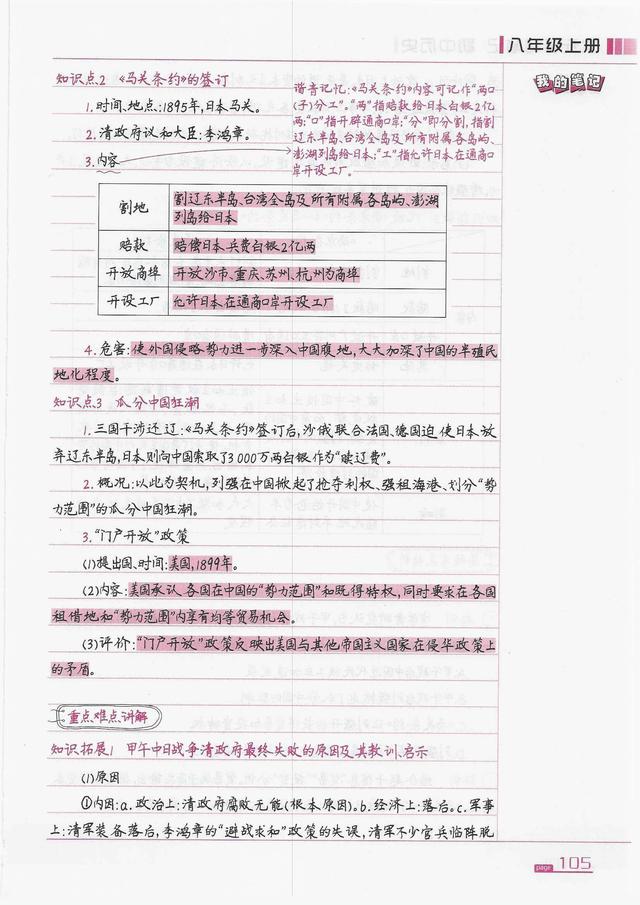 八年级上册
我的笔记
知识点2 《马关条约》的签订
1.时间、地点:1895年,日本马关。
2.清政府议和大臣:李鸿章。
3.内容
谐音记忆:《马关条约》内容可记作“两口
(子)分工”。“两”指赔款给日本白银2亿
两;“口”指开辟通商口岸;“分”即分割,指割
辽东半岛、台湾全岛及所有附属各岛屿、
澎湖列岛给日本;“工”指允许日本在通商口
岸开设工厂。
割地 割辽东半岛、台湾全岛及所有附属各岛屿、澎湖
列岛给日本
赔款 赔偿日本兵费白银2亿两
开放商埠 开放沙市、重庆、苏州、杭州为商埠
开设工厂 允许日本在通商口岸开设工厂
4.危害:使外国侵略势力进一步深入中国腹地,大大加深了中国的半殖民
地化程度。
知识点3 瓜分中国狂潮
1.三国干涉还辽:《马关条约》签订后,沙俄联合法国、德国迫使日本放
弃辽东半岛,日本则向中国索取了3 000万两白银作为“赎辽费”。
2.概况:以此为契机,列强在中国掀起了抢夺利权、强租海港、划分“势
力范围”的瓜分中国狂潮。
3.“门户开放”政策
(1)提出国、时间:美国,1899年。
(2)内容:美国承认各国在中国的“势力范围”和既得特权,同时要求在各国
租借地和“势力范围”内享有均等贸易机会。
(3)评价:“门户开放”政策反映出美国与其他帝国主义国家在侵华政策上
的矛盾。
重点、难点讲解
知识拓展1 甲午中日战争清政府最终失败的原因及其教训、启示
(1)原因
①内因:a.政治上:清政府腐败无能(根本原因)。b.经济上:落后。c.军事
上:清军装备落后,李鸿章的“避战求和”政策的失误,清军不少官兵临阵脱
page 105